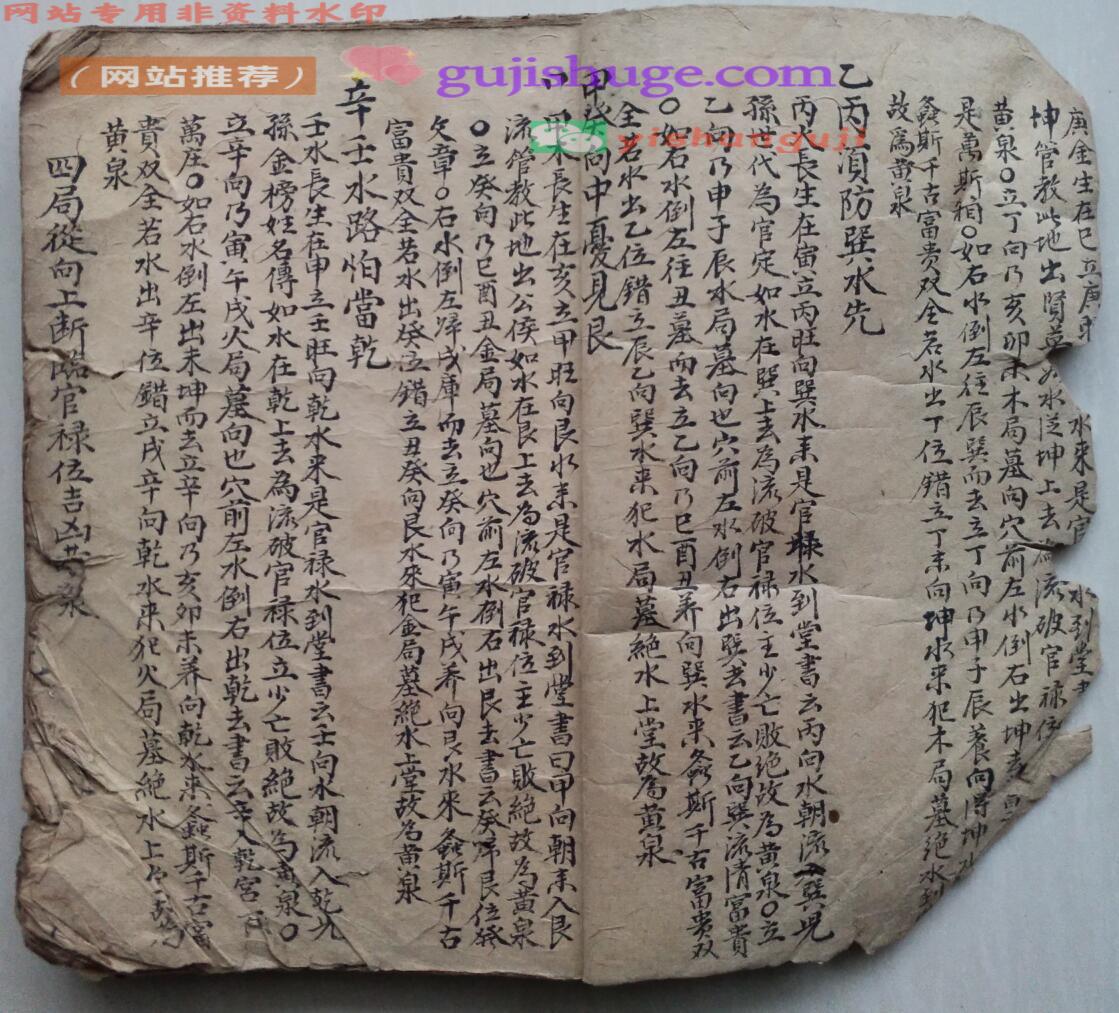 网站专用非资料水印
（网站推荐）
gujishuge.com
yishanguji
庚金生在巳立庚 水来是官 水到堂
坤管教此地出賢 如水從坤上去為流破官禄位
黄泉〇立丁向乃亥卯未木局墓向穴前左水倒右出坤去
是萬斯箱〇如右水倒左徃辰巽而去立丁向乃甲子辰養向得坤
螽斯千古富贵双全若水出丁位錯立丁未向坤水来犯木局墓绝水到
故為黄泉
乙丙須防巽水先
丙火長生在寅立丙旺向巽水来是官禄水到堂書云丙向水朝流入巽兒
孫世代為官定如水在巽上去為流破官禄位主少亡敗绝故為黄泉〇立
乙向乃申子辰水局墓向也穴前左水倒右出巽去書云乙向巽流清富貴
〇如右水倒左往丑墓而去立乙向乃巳酉丑养向巽水来螽斯千古富贵双
全右水出乙位錯立辰乙向巽水来犯水局墓绝水上堂故為黄泉
甲癸向中憂見艮
甲木長生在亥立甲旺向艮水来是官禄水到堂書曰甲向朝来入艮
流管教此地出公侯如水在艮上去為流破官禄位主少亡敗绝故為黄泉
〇立癸向乃巳酉丑金局墓向也穴前左水倒右出艮去書云癸帰艮位發
文章〇右水倒左帰戌庫而去立癸向乃寅午戌养向艮水来螽斯千古
富貴双全若水出癸位錯立丑癸向艮水來犯金局墓絶水上堂故為黄泉
辛壬水路怕當乾
壬水長生在申立壬旺向乾水来是官禄水到堂書云壬向水朝流入乾兒
孫金榜姓名傳如水在乾上去為流破官禄位立少亡敗绝故為黄泉〇
立辛向乃寅午戌火局墓向也穴前左水倒右出乾去書云辛入乾宫百
萬庄〇如右水倒左出未坤而去立辛向乃亥卯未养向乾水来螽斯千古富
貴双全若水出辛位錯立戌辛向乾水来犯火局墓绝水上堂故為
黄泉
四局從向上断臨官禄位吉凶黄泉